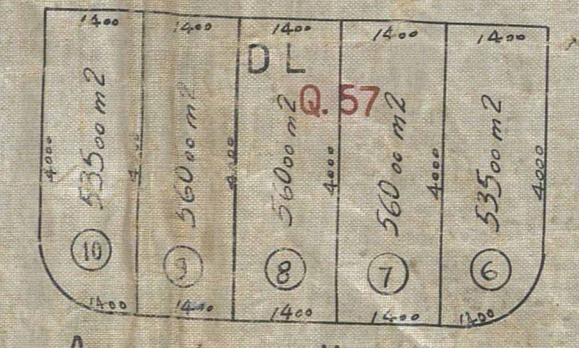 1400 1400 1400 1400 1400
D L
Q.57
4000 53500 m2 4000 56000 m2 4000 56000 m2 4000 56000 m2 4000 53500 m2 4000
10 9 8 7 6
1400 1400 1400 1400 1400